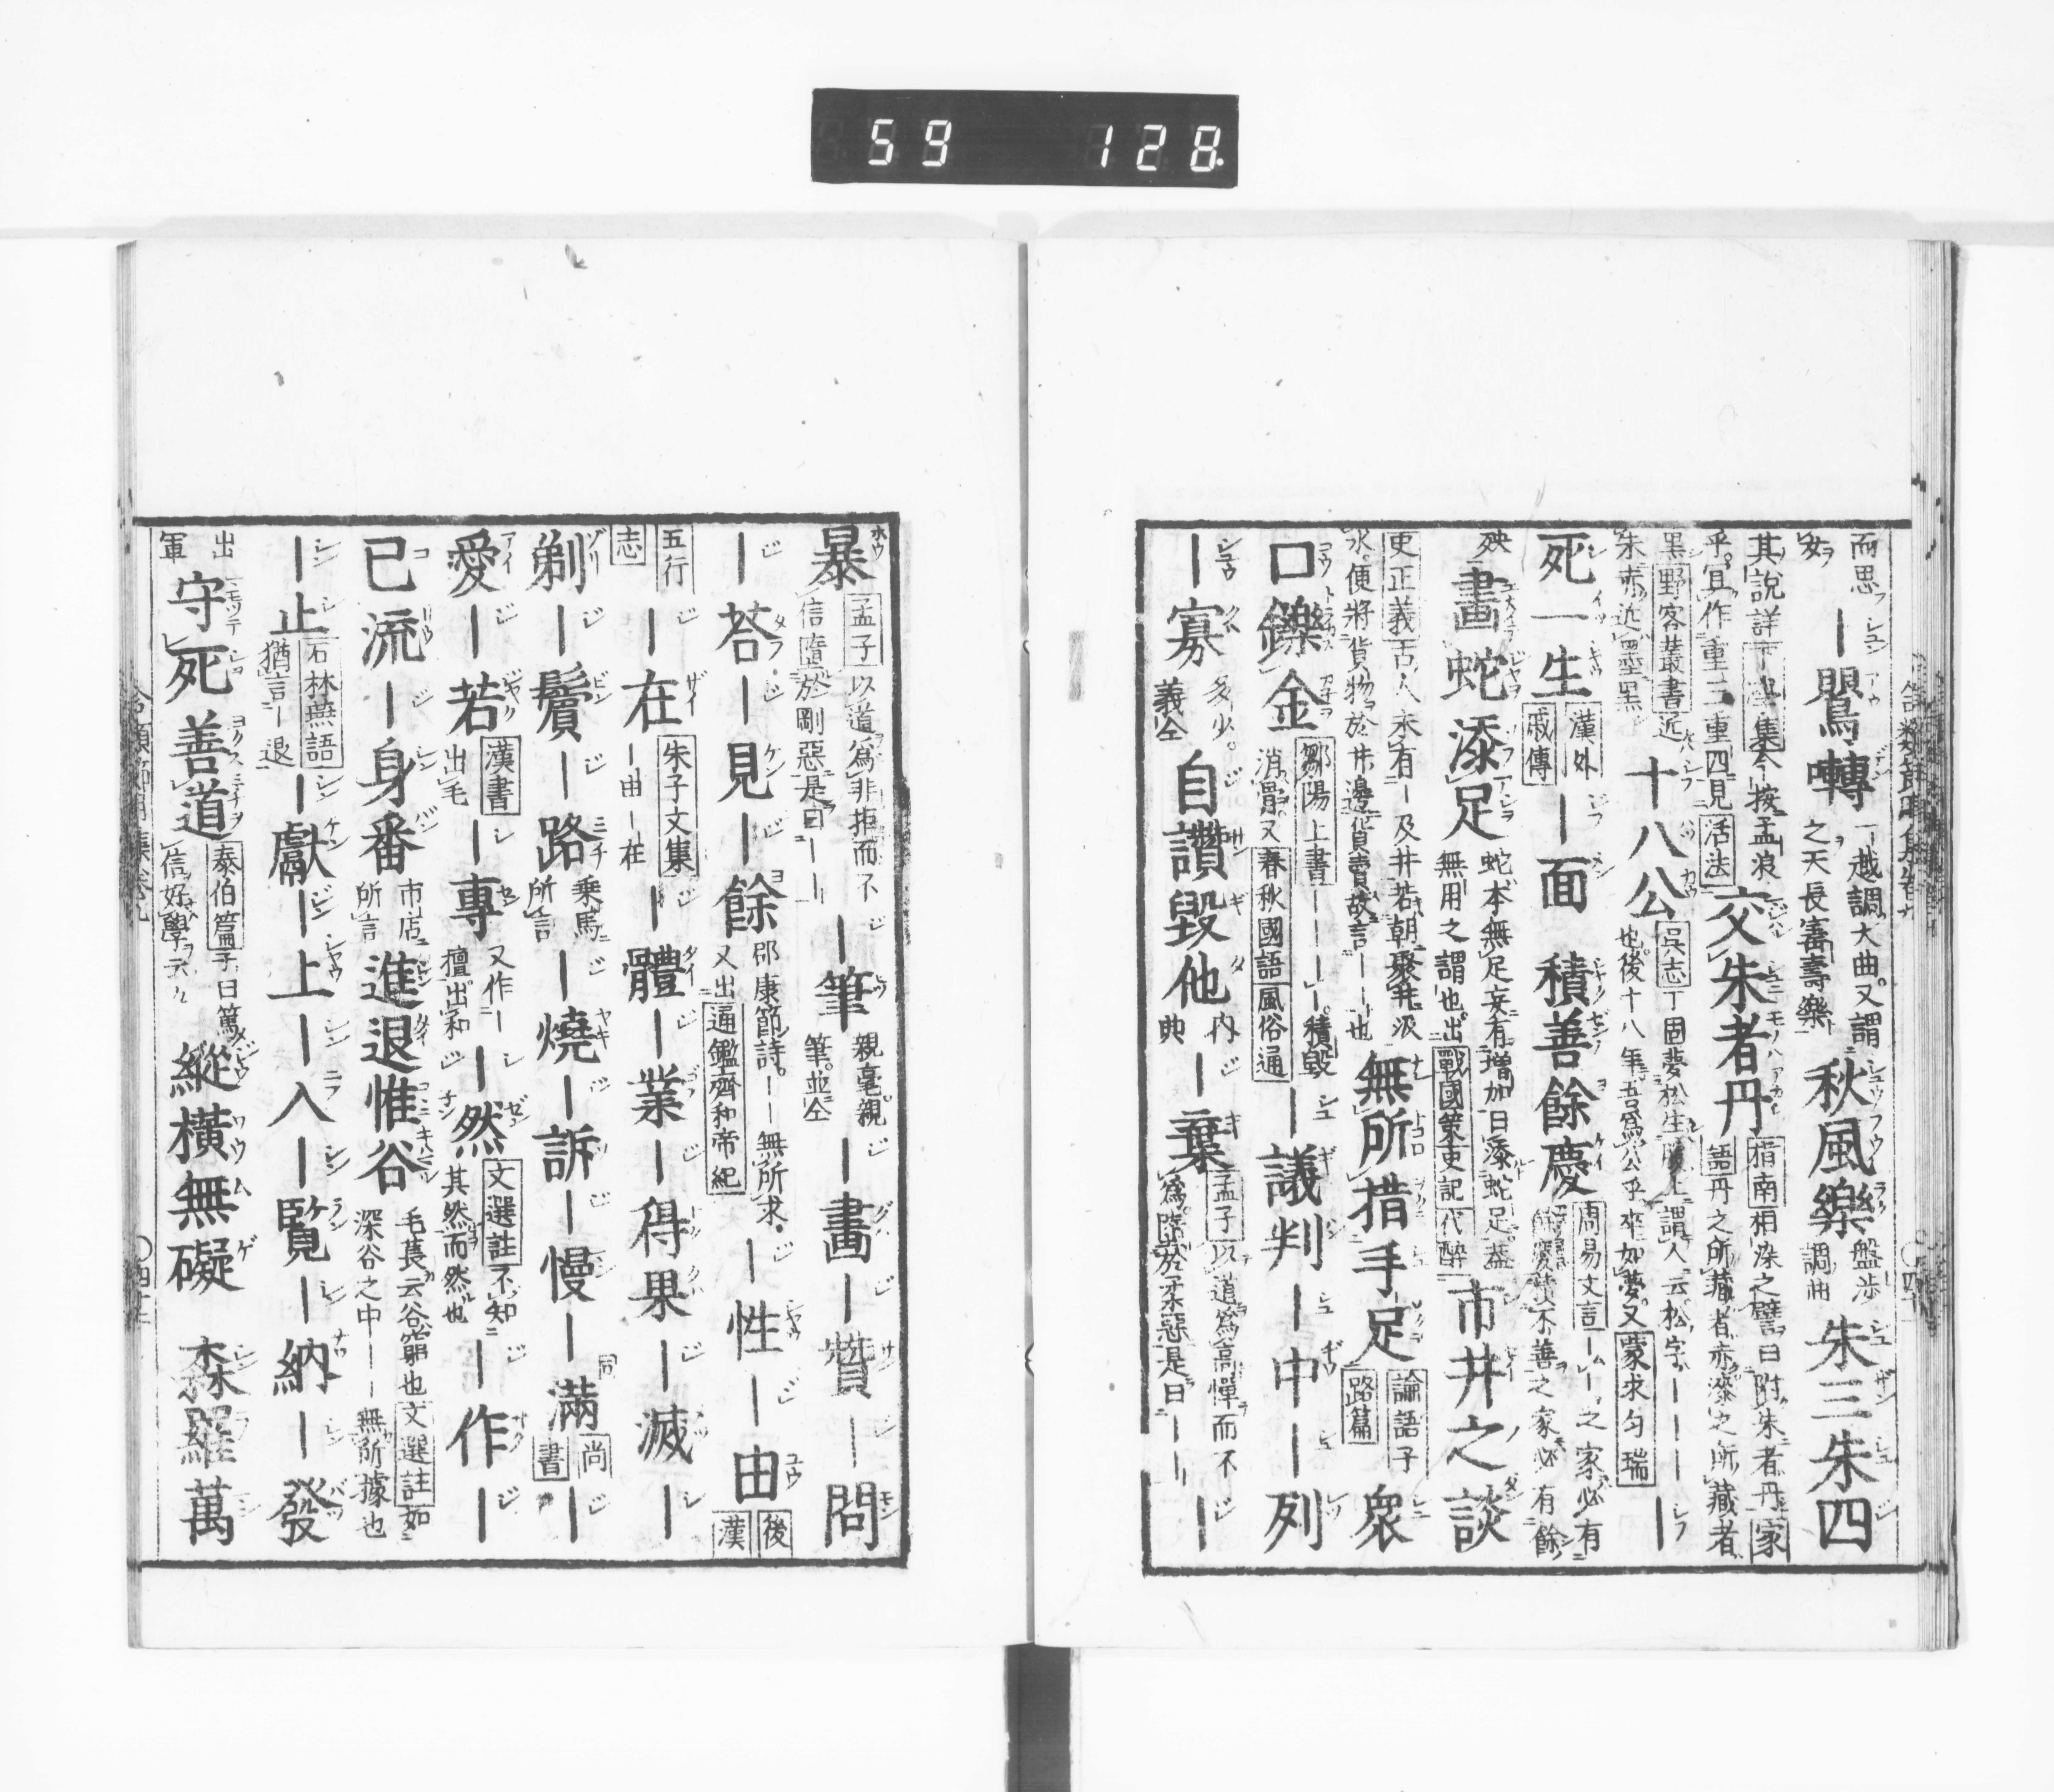 59 128
而思
―鶯囀
一越調大曲。又謂
之天長審壽樂
秋風樂
盤渉
調曲
朱三朱四
其說詳
集今按孟浪
乎。冝作重三重四見活法
交朱者丹
指南相染之譬曰附朱者丹家
語丹之所藏者赤漆之所藏者
黑野客叢書近
朱赤近墨黑
十八公
吳志丁固夢松生腹上謂人云松字―――
也後十八年吾爲公乎卒如夢又蒙求勻瑞
死一生
漢外
戚傳
―面
積善餘慶
周易文言――之家必有
不善之家必有餘
殃
畫蛇添足
蛇本無足妄有增加曰添蛇足蓋
無用之謂也出戰國策史記代醉
市井之談
史正義古人未有―及井若朝聚井汲
水便將貨物於井邊貨賣故言――也
無所措手足
論語子
路篇
衆
口鑠金
鄒陽上書――――積毀
消骨又春秋國語風俗通
―議判―中―列
―寡
多少。
義仝
自讚毀他
内
典
―棄
孟子以道爲高憚而不
爲陷於柔惡是曰――
―
暴
孟子以道爲非拒而不
信墮於剛惡是曰――
―筆
親毫親
筆並仝
―畫―贊―問
―荅―見―餘
邵康節詩。――無所求
又出通鑑齊和帝紀
―性―由
後
漢
五行
志
―在
朱子文集
―由―在
―體―業―得果―滅―
剃―鬢―路
乗馬
所言
―燒―訴―慢―滿
尚
書
―
愛―若
漢書
出毛
―專
又作―
擅出和
―然
文選註不知
其然而然也
―作―
已流―身番
市店
所言
進退惟谷
毛萇云谷窮也文選註如
深谷之中――無所據也
―止
石林燕語
猶言―退
―獻―上―入―覽―納―發
出
軍
守死善道
泰伯篇子曰篤
信好學云々
縱橫無礙
森羅萬